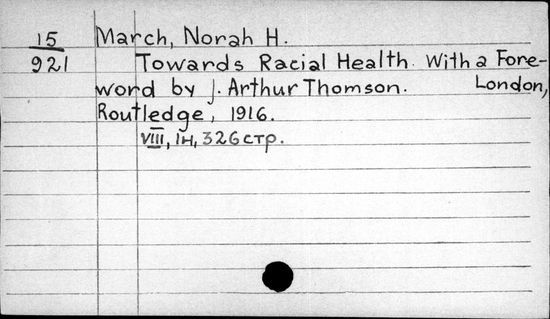 15 March, Norah H.
921 Towards Racial Health. With a Fore-
word by J. Arthur Thomson. London,
Routledge, 1916.
VIII, 1н, 326 стр.